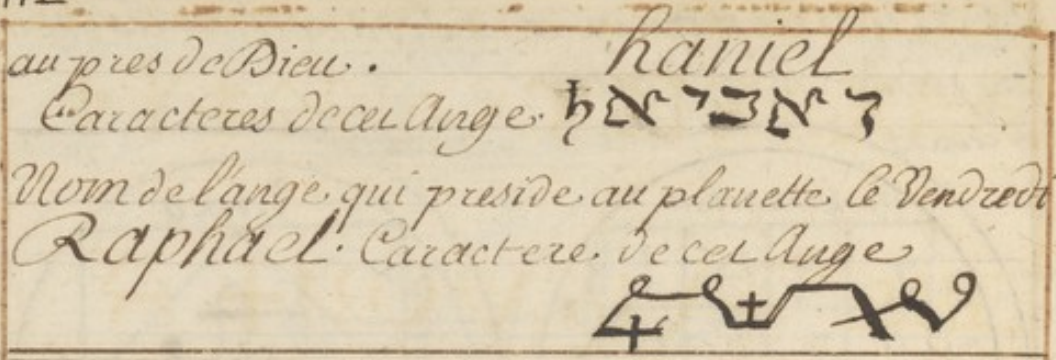 au pres de Dieu. haniel
Caracteres de cet Ange.
Nom de l'ange qui preside au planette le Vendredi
Raphael. Caractere de cet Ange